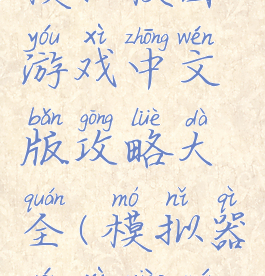 yóu xì zhōng wén
游戏中文
bǎn gōng lüè dà
版攻略大
quán mó nǐ qì
全(模拟器